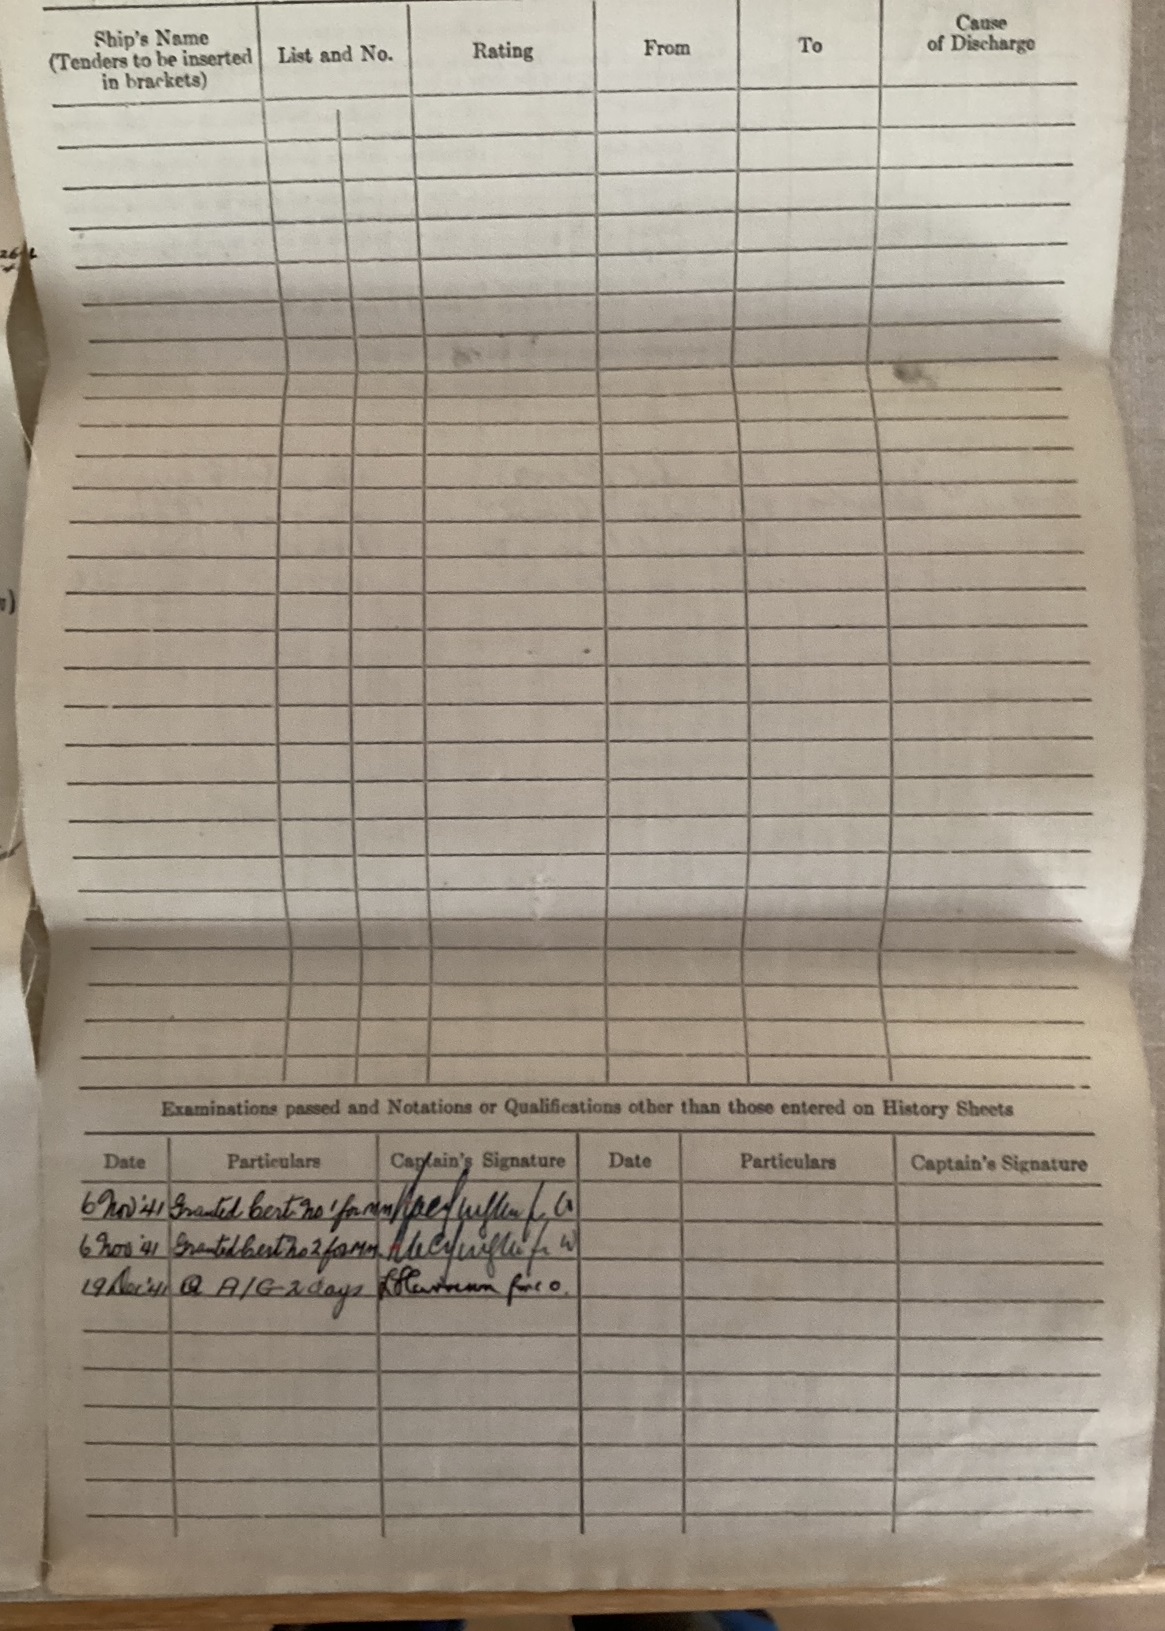 Ship's Name (Tenders to be inserted in brackets) List and No. Rating From To Cause of Discharge
Examinations passed and Notations or Qualifications other than those entered on History Sheets
Date Particulars Captain's Signature Date Particulars Captain's Signature
6 Nov '41 Granted Cert. No 1 for
6 Nov '41 Granted Cert No 2 for
19 Dec '41 Q A/G 2 days for C O.